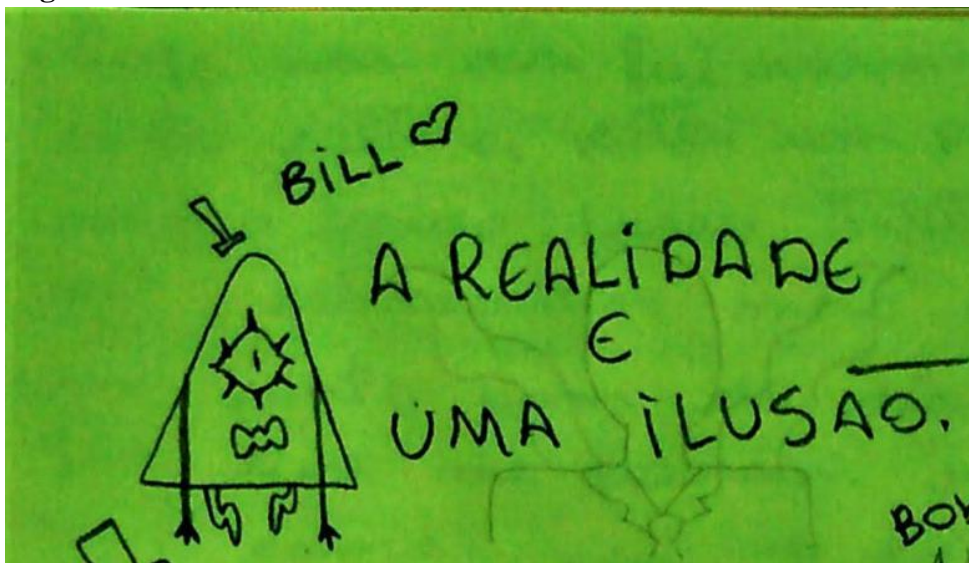 BiLL
A REALiDADE
E
UMA iLUSAO.